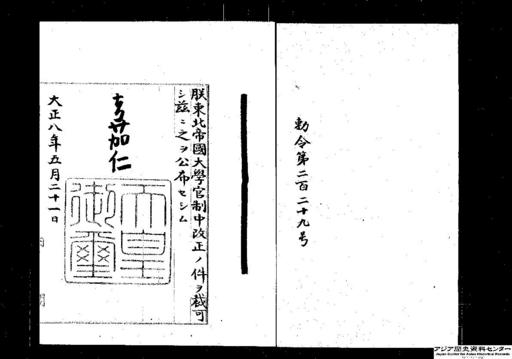 勅令第二百二十九号
朕東北帝國大學官制中改正ノ件ヲ裁可
シ茲ニ之ヲ公布セシム
嘉仁
天皇御璽
大正八年五月二十一日
アジア歴史資料センター
Japan Center for Asian Historical Records